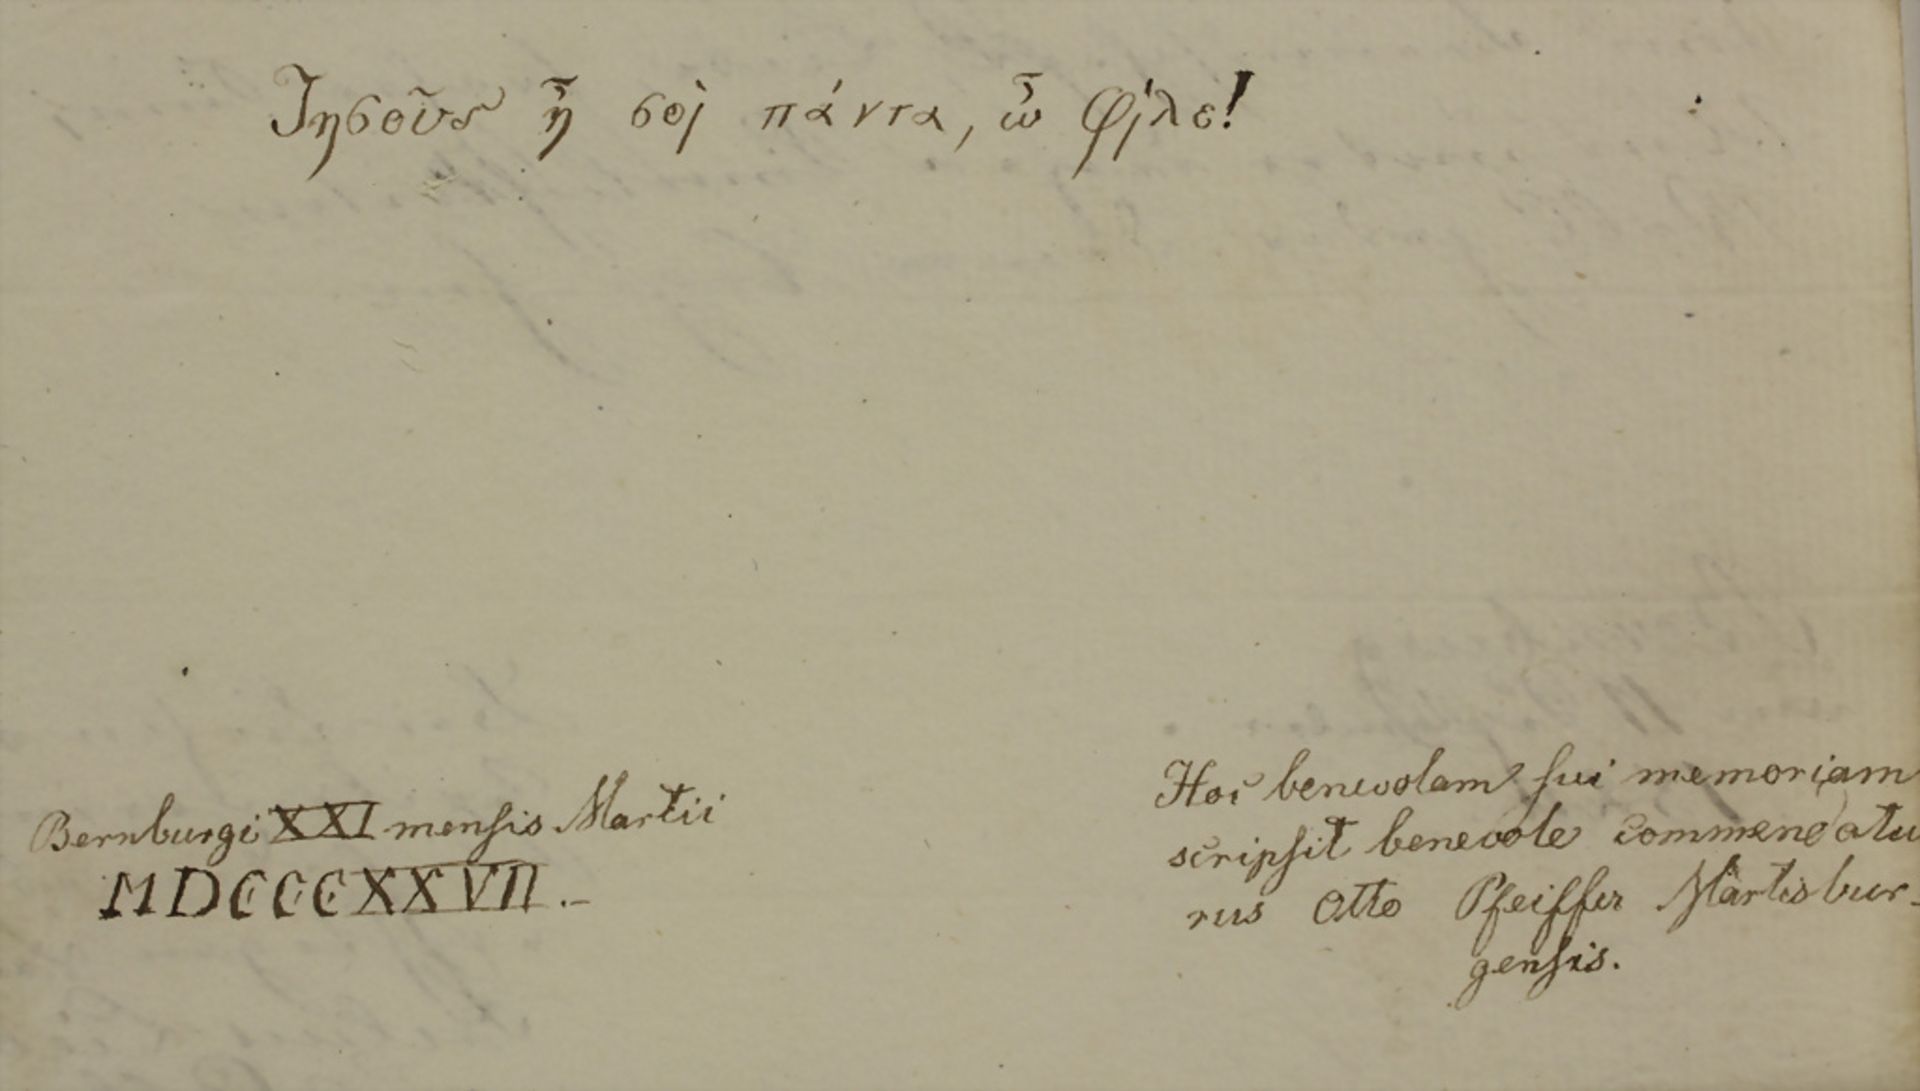 Ἰησοῦς ᾖ σοὶ πάντα, ὦ φίλε!
Bernburgi XXI mensis Martii
MDCCCXXVII.–
Hoc benevolam sui memoriam
scripsit benevole commendatu
rus Otto Pfeiffer Martisbur-
gensis.